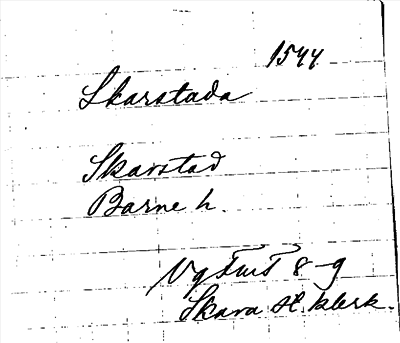 1544
Skarstada
Skarstad
Barne h.
Vg Fmt 8-9
Skara st. klerk.